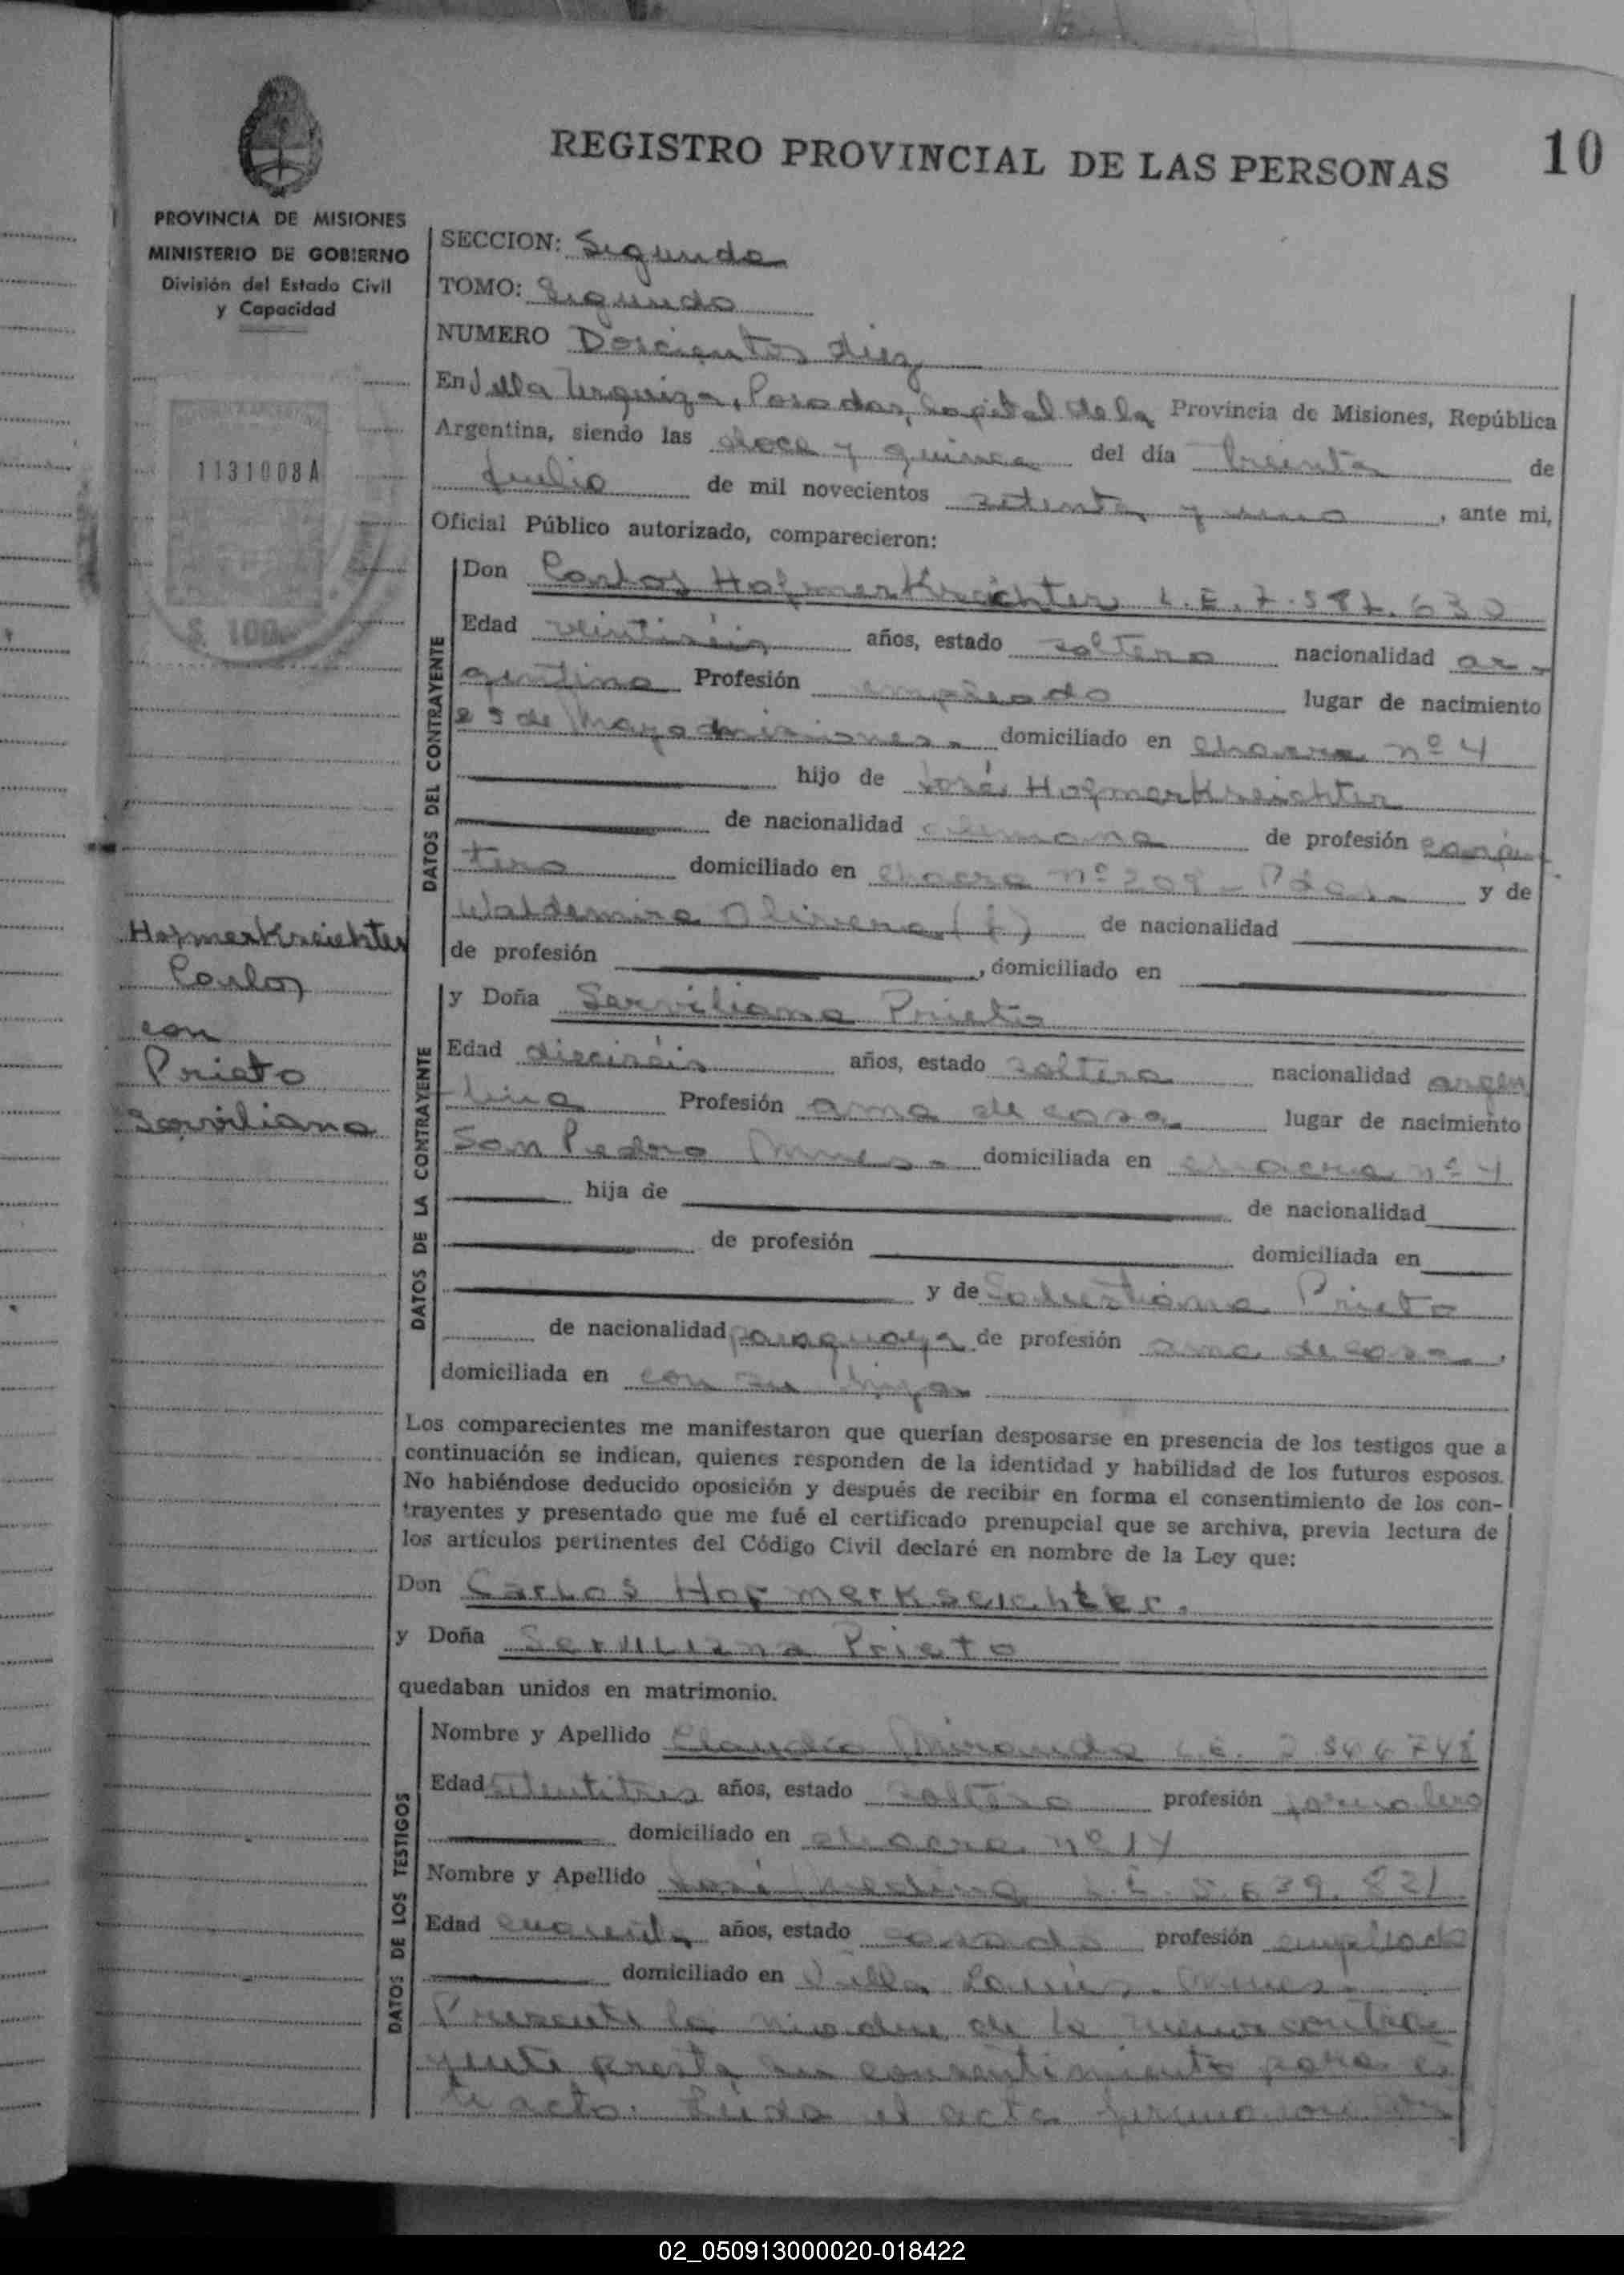 REGISTRO PROVINCIAL DE LAS PERSONAS
10
PROVINCIA DE MISIONES
MINISTERIO DE GOBIERNO
División del Estado Civil
y Capacidad
1131008A
$ 100
Hofmerkseichter
Carlos
con
Prieto
Serviliana
SECCION: Segunda
TOMO: Segundo
NUMERO Doscientos diez
En Villa Urquiza, Posadas, Capital de la Provincia de Misiones, República
Argentina, siendo las doce y quince del día treinta de
Julio de mil novecientos setenta y uno, ante mi,
Oficial Público autorizado, comparecieron:
DATOS DEL CONTRAYENTE
Don Carlos Hofmerkseichter L.E. 7.587.630
Edad veintiséis años, estado soltero nacionalidad ar-
gentina Profesión empleado lugar de nacimiento
25 de Mayo Misiones. domiciliado en chacra nº 4
hijo de José Hofmerkseichter
de nacionalidad alemana de profesión carpin
tero domiciliado en chacra nº 209 - Pdas. y de
Waldemira Olivera (f) de nacionalidad
de profesión , domiciliado en
DATOS DE LA CONTRAYENTE
y Doña Serviliana Prieto
Edad dieciséis años, estado soltera nacionalidad argen
tina Profesión ama de casa lugar de nacimiento
San Pedro Mnes. domiciliada en chacra nº 4
hija de de nacionalidad
de profesión domiciliada en
y de Salustiana Prieto
de nacionalidad paraguaya de profesión ama de casa,
domiciliada en con su hija
Los comparecientes me manifestaron que querían desposarse en presencia de los testigos que a
continuación se indican, quienes responden de la identidad y habilidad de los futuros esposos.
No habiéndose deducido oposición y después de recibir en forma el consentimiento de los con-
trayentes y presentado que me fué el certificado prenupcial que se archiva, previa lectura de
los artículos pertinentes del Código Civil declaré en nombre de la Ley que:
Don Carlos Hofmerkseichter.
y Doña Serviliana Prieto
quedaban unidos en matrimonio.
DATOS DE LOS TESTIGOS
Nombre y Apellido Claudio Miranda L.E. 2 566 748
Edad setentitres años, estado soltero profesión jornalero
domiciliado en chacra nº 14
Nombre y Apellido José Medina L.E. 5.639.221
Edad cuarenta años, estado casado profesión empleado
domiciliado en Villa Lanús. Mnes.
Presente la madre de la menor contra
yente presta su consentimiento para es
te acto. Leída el acta firman con
02_050913000020-018422